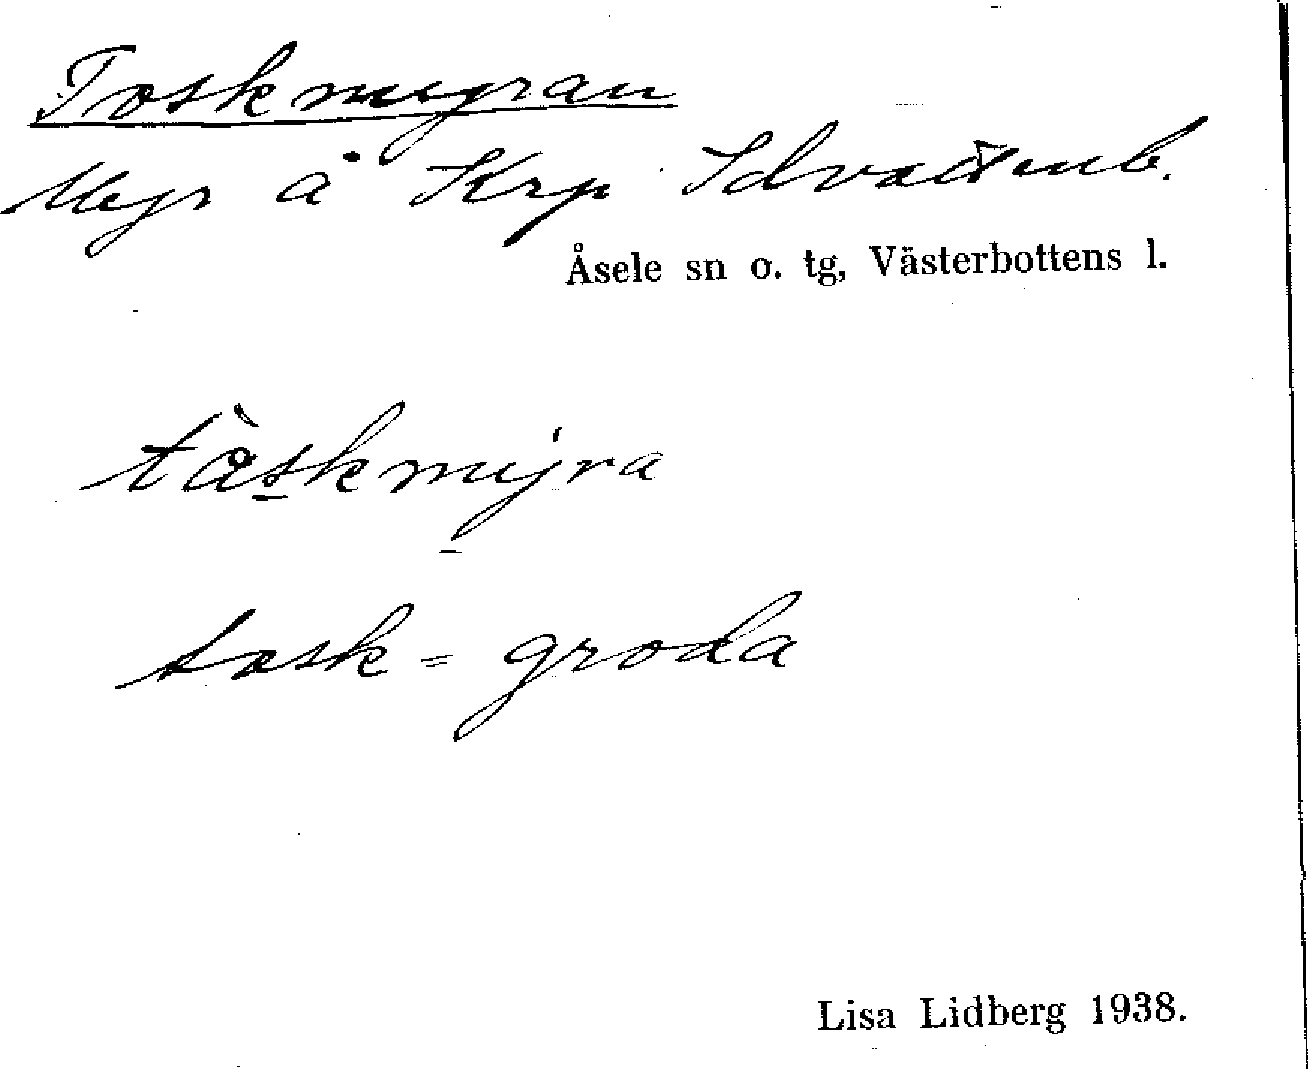 Toskmyran
Myr å Krp Idvattenb.
Åsele sn o. tg, Västerbottens l.
tåskmyra
tosk = groda
Lisa Lidberg 1938.